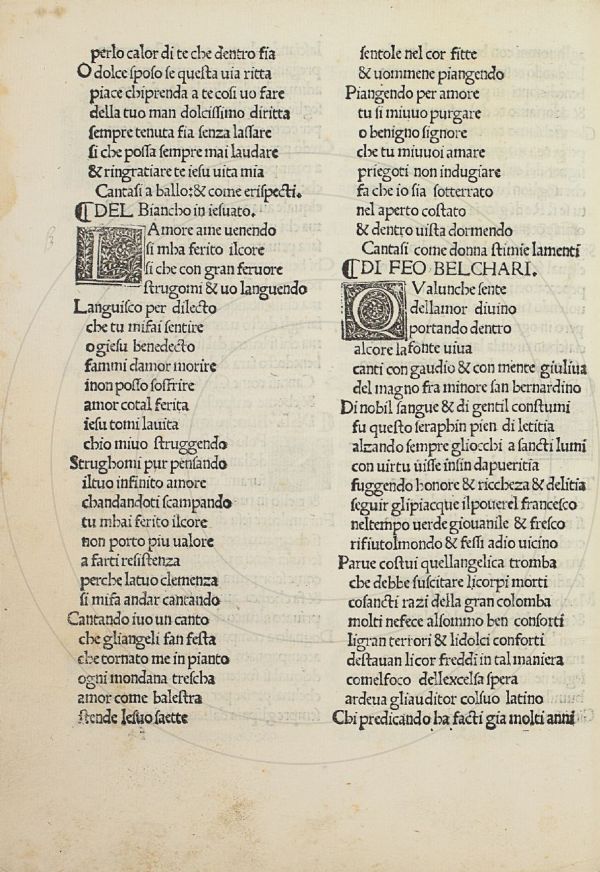 perlo calor di te che dentro sia
O dolce sposo se questa uia ritta
piace chiprenda a te cosi uo fare
della tuo man dolcissimo diritta
sempre tenuta sia senza lassare
si che possa sempre mai laudare
& ringratiare te iesu uita mia
Cantasi a ballo: & come erispecti.
¶DEL Biancho in iesuato.
LAmore ame uenendo
si mha ferito ilcore
si che con gran feruore
strugomi & uo languendo
Languisco per dilecto
che tu mifai sentire
ogiesu benedecto
fammi damor morire
inon posso soffrire
amor cotal ferita
iesu tomi lauita
chio miuo struggendo
Strughomi pur pensando
iltuo infinito amore
chandandoti scampando
tu mhai ferito ilcore
non porto piu ualore
a farti resistenza
perche latuo clemenza
si mifa andar cantando
Cantando iuo un canto
che gliangeli fan festa
che tornato me in pianto
ogni mondana trescha
amor come balestra
stende lesuo saette
sentole nel cor fitte
& uommene piangendo
Piangendo per amore
tu si miuuo purgare
o benigno signore
che tu miuuoi amare
priegoti non indugiare
fa che io sia sotterrato
nel aperto costato
& dentro uista dormendo
Cantasi come donna stimie lamenti
¶DI FEO BELCHARI.
QValunche sente
dellamor diuino
portando dentro
alcore lafonte uiua
canti con gaudio & con mente giuliua
del magno fra minore san bernardino
Di nobil sangue & di gentil costumi
fu questo seraphin pien di letitia
alzando sempre gliocchi a sancti lumi
con uirtu uisse insin dapueritia
fuggendo honore & riccheza & delitia
seguir glipiacque ilpouerel francesco
neltempo uerde giouanile & fresco
rifiutolmondo & fessi adio uicino
Parue costui quellangelica tromba
che debbe suscitare licorpi morti
cosancti razi della gran colomba
molti nefece alsommo ben consorti
ligran terrori & lidolci conforti
destauan licor freddi in tal maniera
comelfoco dellexcelsa spera
ardeua gliauditor colsuo latino
Chi predicando ha facti gia molti anni